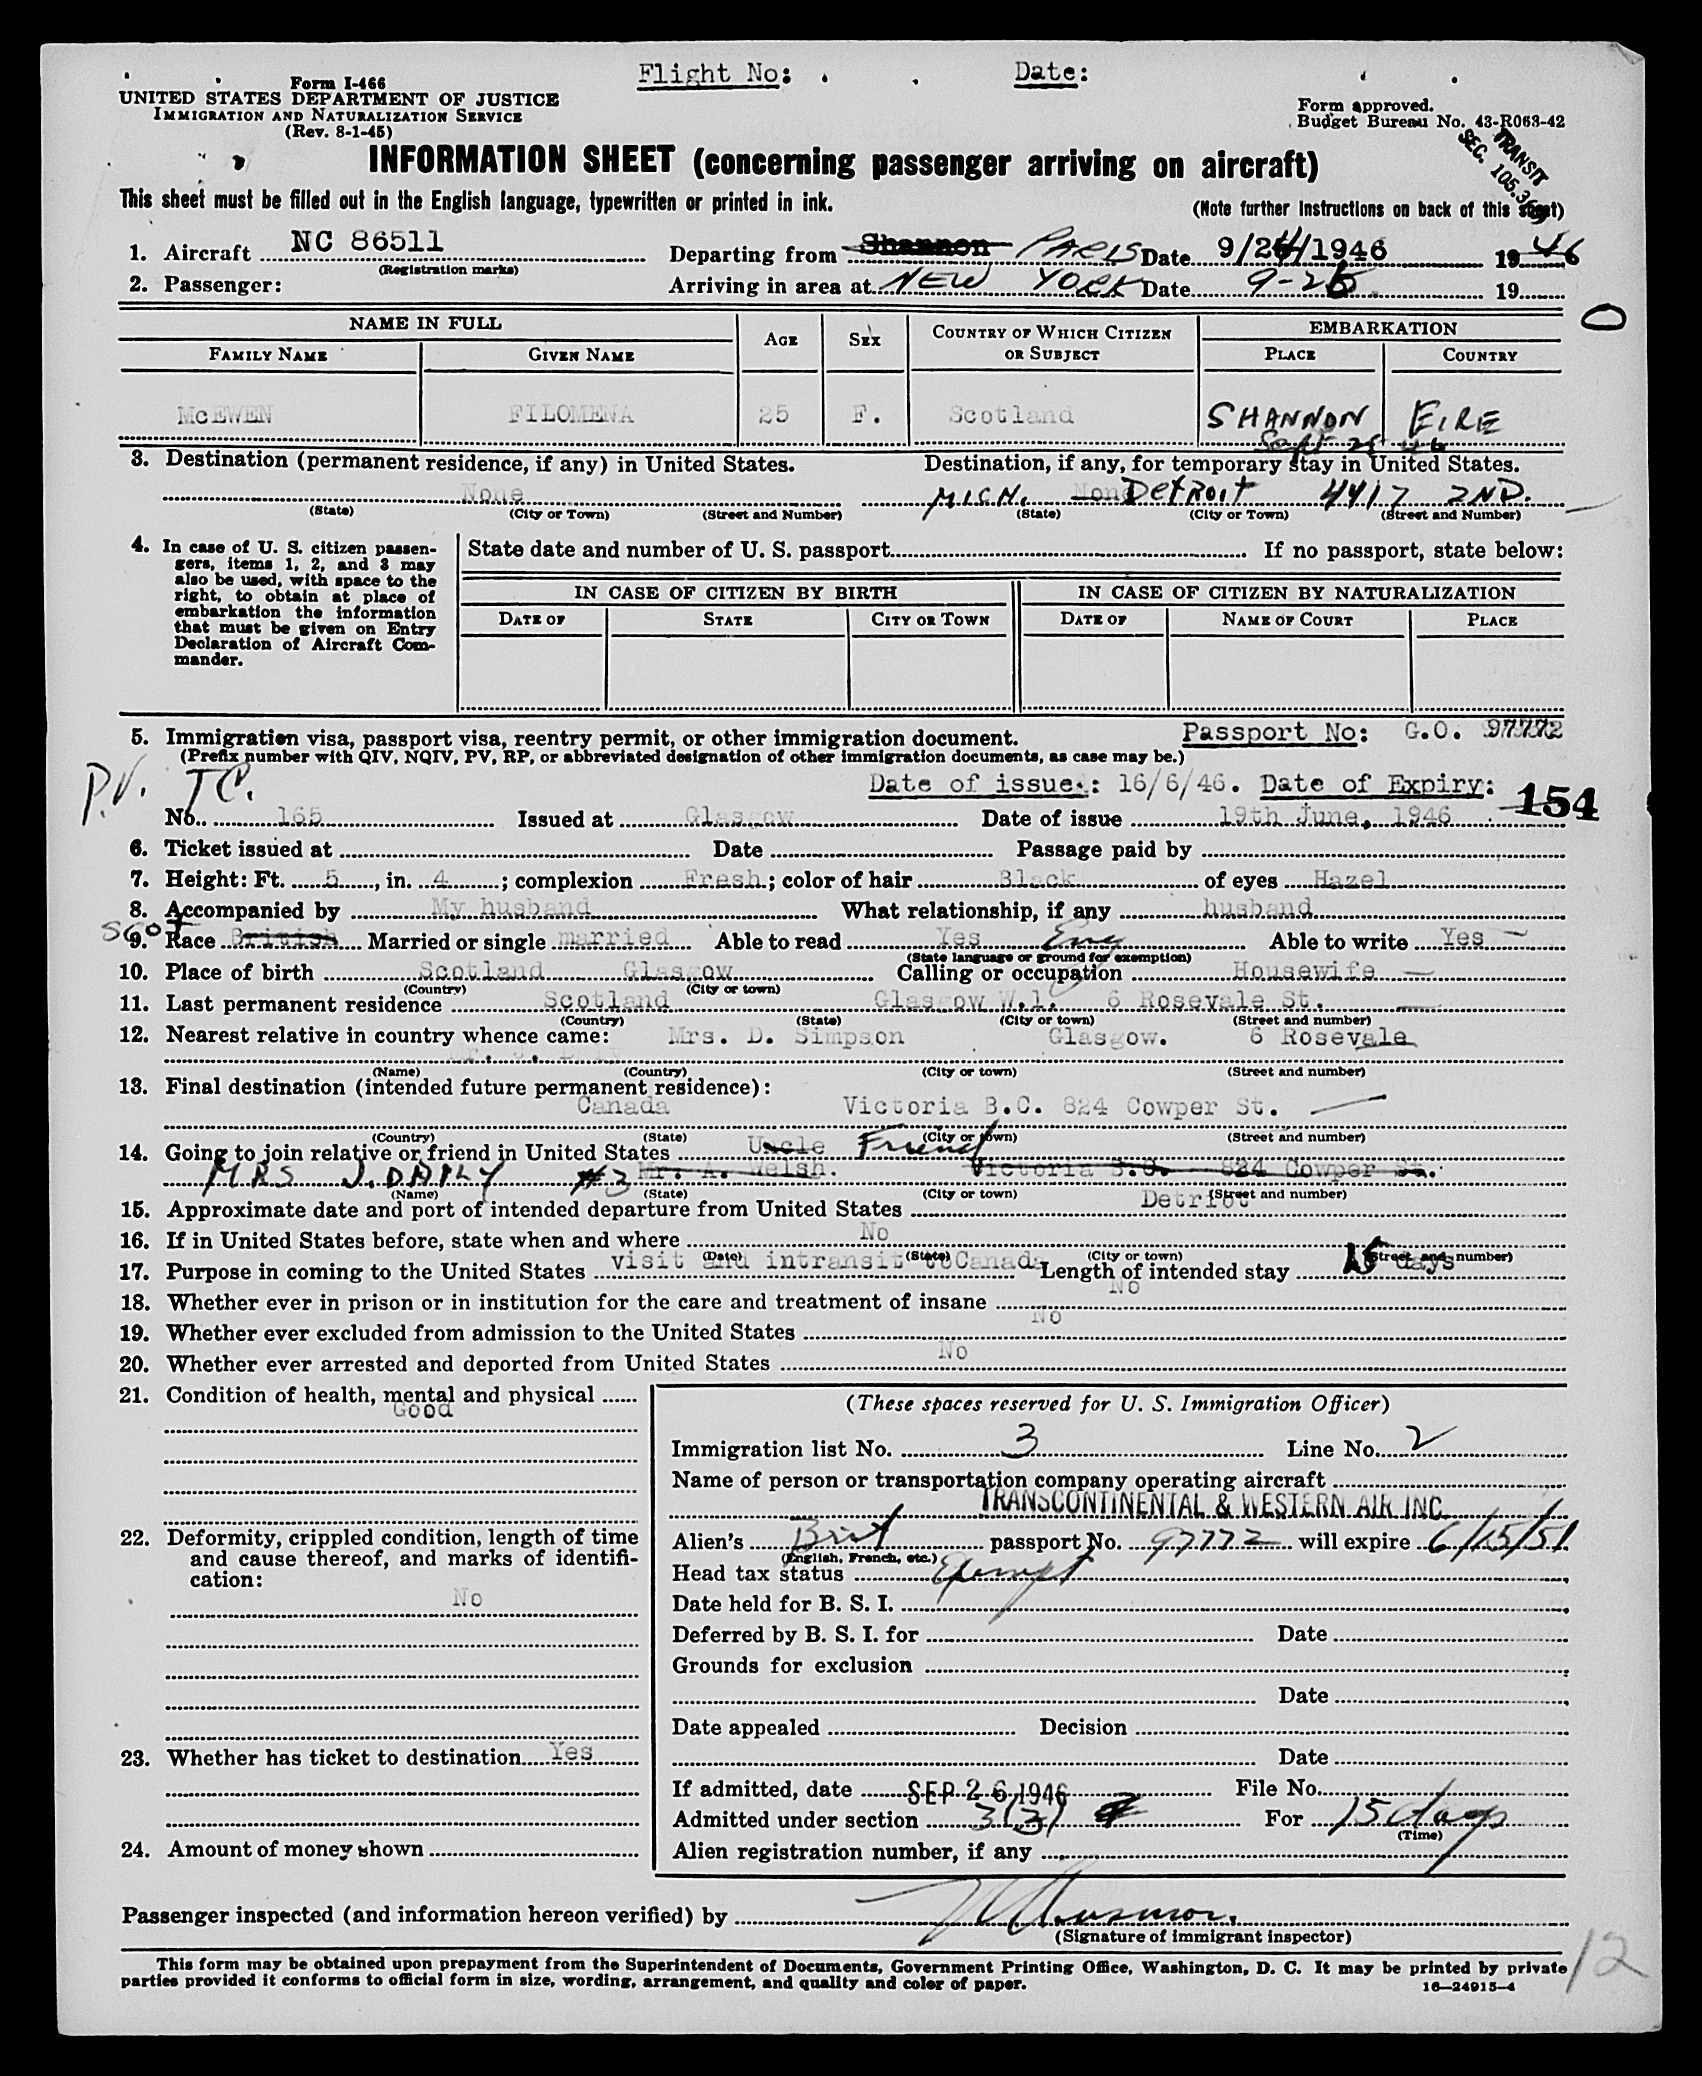 Form I-466
UNITED STATES DEPARTMENT OF JUSTICE
IMMIGRATION AND NATURALIZATION SERVICE
(Rev. 8-1-45)
Flight No: Date:
Form approved.
Budget Bureau No. 43-R063-42
TRANSIT
SEC. 105.3
INFORMATION SHEET (concerning passenger arriving on aircraft)
This sheet must be filled out in the English language, typewritten or printed in ink.
(Note further instructions on back of this sheet)
1. Aircraft NC 86511 Departing from Shannon PARIS Date 9/24/1946 1946
(Registration marks)
2. Passenger: Arriving in area at NEW YORK Date 9-25 19
NAME IN FULL AGE SEX COUNTRY OF WHICH CITIZEN OR SUBJECT EMBARKATION
FAMILY NAME GIVEN NAME PLACE COUNTRY
McEWEN FILOMENA 25 F. Scotland SHANNON EIRE
Sept 25 46
3. Destination (permanent residence, if any) in United States. Destination, if any, for temporary stay in United States.
None MICH. None Detroit 4417 2ND.
(State) (City or Town) (Street and Number) (State) (City or Town) (Street and Number)
4. In case of U. S. citizen passengers, items 1, 2, and 3 may
also be used, with space to the
right, to obtain at place of
embarkation the information
that must be given on Entry
Declaration of Aircraft Commander.
State date and number of U. S. passport If no passport, state below:
IN CASE OF CITIZEN BY BIRTH IN CASE OF CITIZEN BY NATURALIZATION
DATE OF STATE CITY OR TOWN DATE OF NAME OF COURT PLACE
5. Immigration visa, passport visa, reentry permit, or other immigration document. Passport No: G.O. 97772
(Prefix number with QIV, NQIV, PV, RP, or abbreviated designation of other immigration documents, as case may be.)
P.V. TC. Date of issue: 16/6/46. Date of Expiry: 154
No. 165 Issued at Glasgow Date of issue 19th June, 1946
6. Ticket issued at Date Passage paid by
7. Height: Ft. 5, in. 4; complexion Fresh; color of hair Black of eyes Hazel
8. Accompanied by My husband What relationship, if any husband
Scot
9. Race British Married or single married Able to read Yes Eng Able to write Yes
(State language or ground for exemption)
10. Place of birth Scotland Glasgow Calling or occupation Housewife
(Country) (City or town)
11. Last permanent residence Scotland Glasgow W.1. 6 Rosevale St.
(Country) (State) (City or town) (Street and number)
12. Nearest relative in country whence came: Mrs. D. Simpson Glasgow. 6 Rosevale
(Name) (Country) (City or town) (Street and number)
13. Final destination (intended future permanent residence):
Canada Victoria B.C. 824 Cowper St.
(Country) (State) (City or town) (Street and number)
14. Going to join relative or friend in United States Uncle Friend
MRS J. DAILY #3 Mr. A. Welsh. Victoria B.C. 824 Cowper St.
(Name) (State) (City or town) (Street and number)
15. Approximate date and port of intended departure from United States Detriot
16. If in United States before, state when and where No
(Date) (State) (City or town) (Street and number)
17. Purpose in coming to the United States visit and intransit to Canada Length of intended stay 15 days
18. Whether ever in prison or in institution for the care and treatment of insane No
19. Whether ever excluded from admission to the United States No
20. Whether ever arrested and deported from United States No
21. Condition of health, mental and physical
Good
22. Deformity, crippled condition, length of time
and cause thereof, and marks of identification:
No
23. Whether has ticket to destination Yes
24. Amount of money shown
(These spaces reserved for U. S. Immigration Officer)
Immigration list No. 3 Line No. 2
Name of person or transportation company operating aircraft
TRANSCONTINENTAL & WESTERN AIR INC.
Alien's Brit passport No. 97772 will expire 6/15/51
(English, French, etc.)
Head tax status Exempt
Date held for B. S. I.
Deferred by B. S. I. for Date
Grounds for exclusion
Date
Date appealed Decision
Date
If admitted, date SEP 26 1946 File No.
Admitted under section 3(3) For 15 days
(Time)
Alien registration number, if any
Passenger inspected (and information hereon verified) by
(Signature of immigrant inspector)
This form may be obtained upon prepayment from the Superintendent of Documents, Government Printing Office, Washington, D. C. It may be printed by private
parties provided it conforms to official form in size, wording, arrangement, and quality and color of paper.
16—24915-4
12